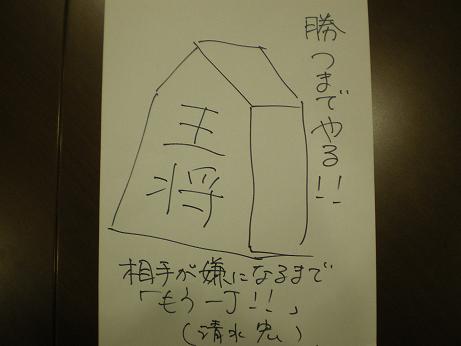 勝つまでやる!!
王将
相手が嫌になるまで
「もう一丁!!」
(清水宏)